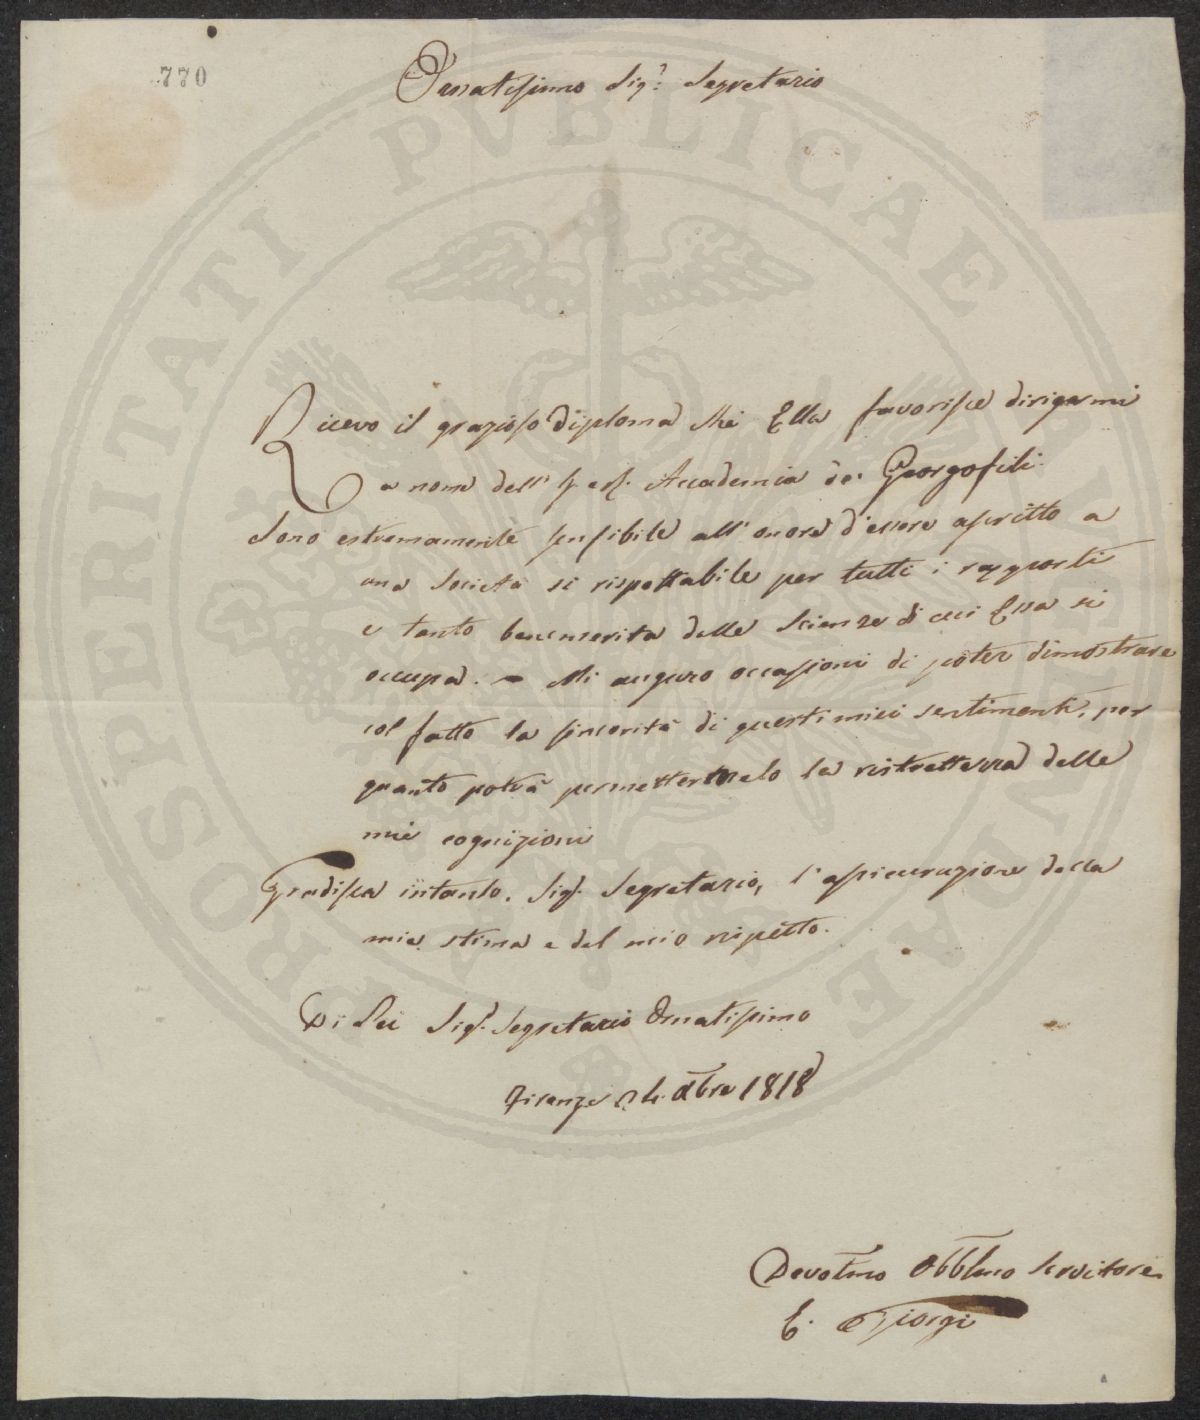 770
Ornatissimo Sig.r Segretario
PROSPERITATI PVBLICAE AVGENDAE
Ricevo il grazioso Diploma che Ella favorisce dirigermi
a nome dell' Accademia dei Georgofili.
Sono estremamente sensibile all' onore d'essere ascritto a
una Società si rispettabile per tutti i rapporti
e tanto benemerita delle Scienze di cui Essa si
occupa. – Mi auguro occasioni di poter dimostrare
col fatto la sincerità di questi miei sentimenti, per
quanto potrà permettermelo la ristrettezza delle
mie cognizioni
Gradisca intanto, Sig.r Segretario, l'assicurazione della
mia stima e del mio rispetto.
Di Lei Sig.r Segretario Ornatissimo
Firenze 24. Xbre 1818
Devotmo Obblmo Servitore
E. Giorgi